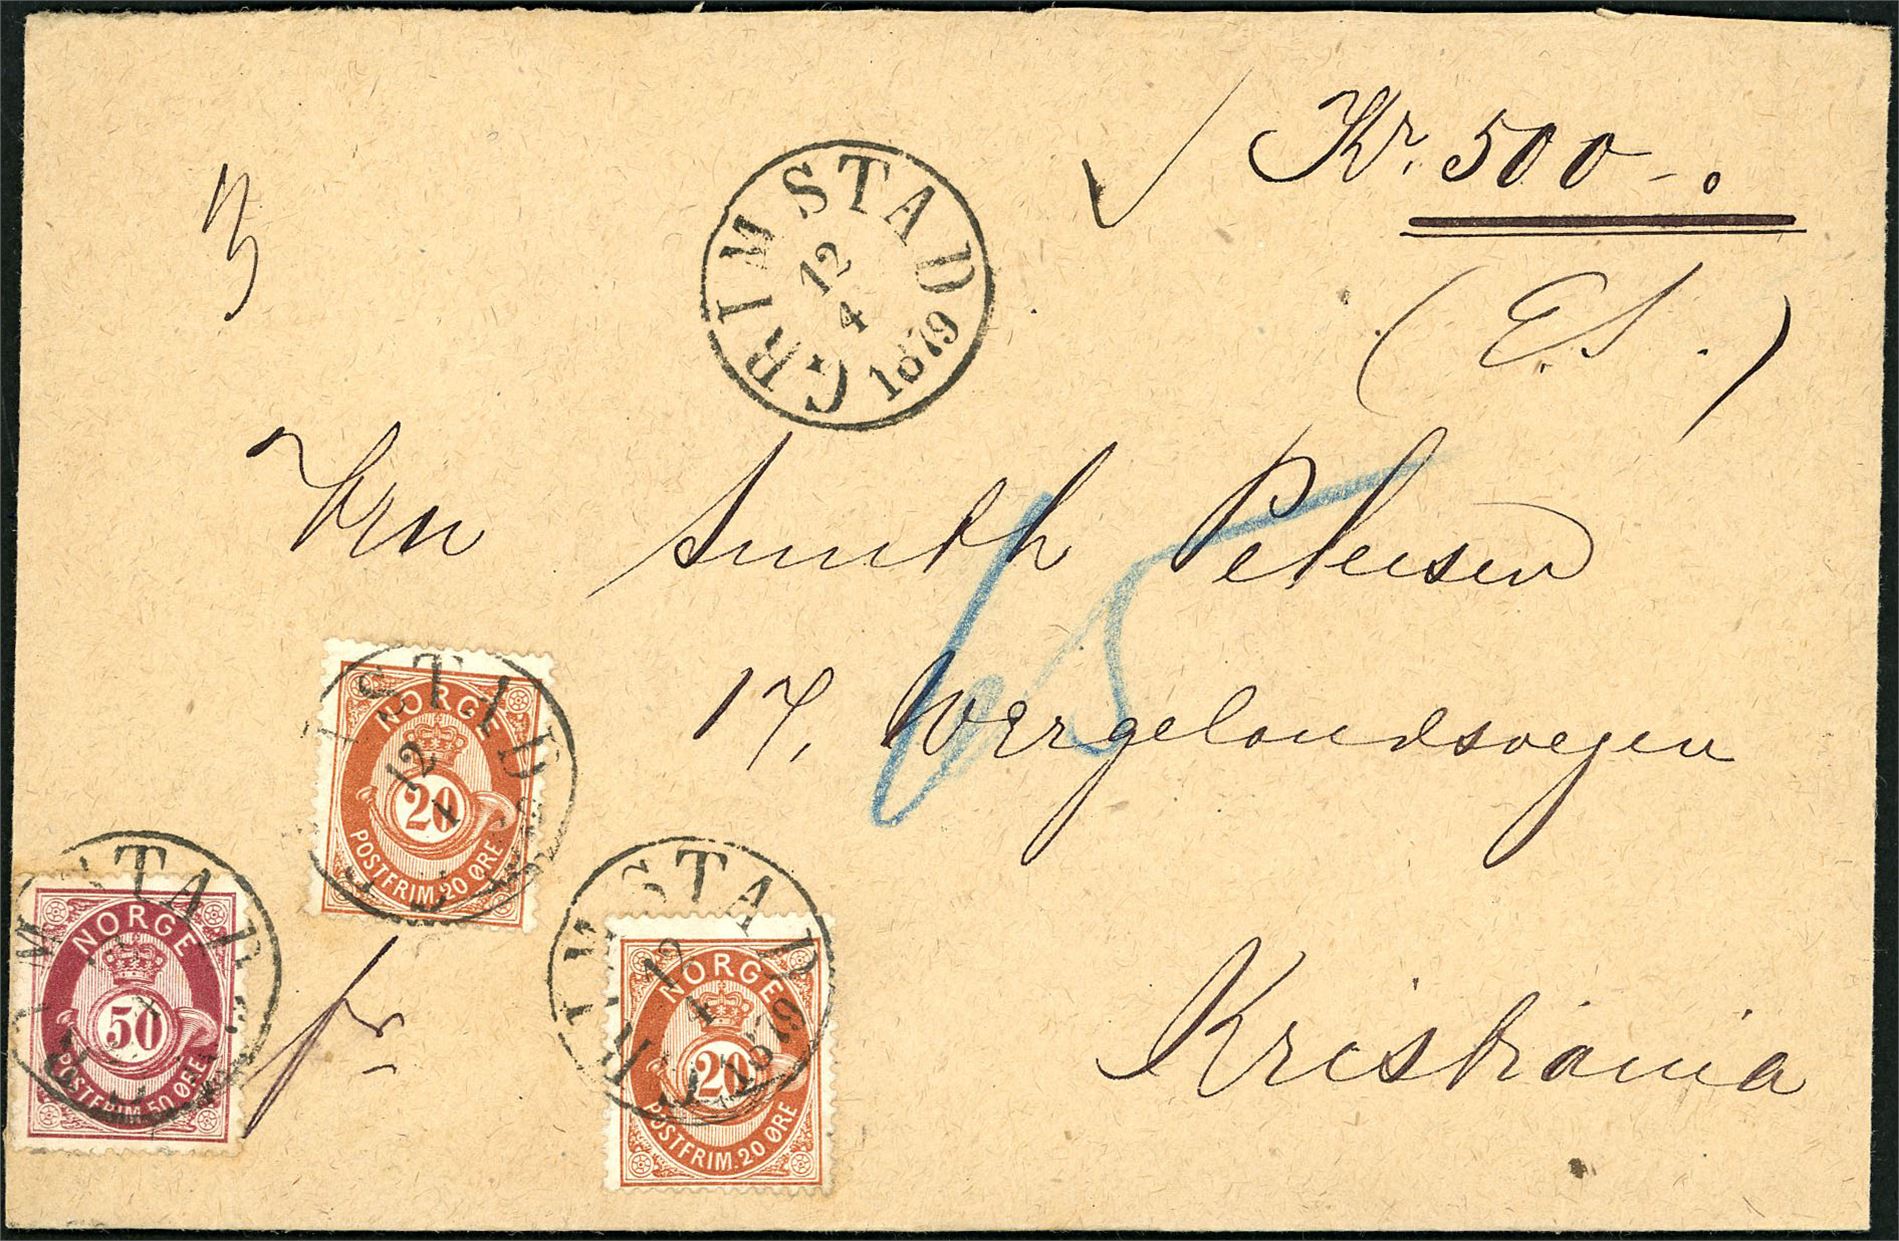 Kr. 500 -.
(E.S.)
GRIMSTAD
12
4
1879
Smith Petersen
65
17, Wergelandsvegen
Kristiania
fr
NORGE
20
POSTFRIM. 20 ØRE
12
4
NORGE
50
POSTFRIM. 50 ØRE
NORGE
20
POSTFRIM. 20 ØRE
12
4
1879